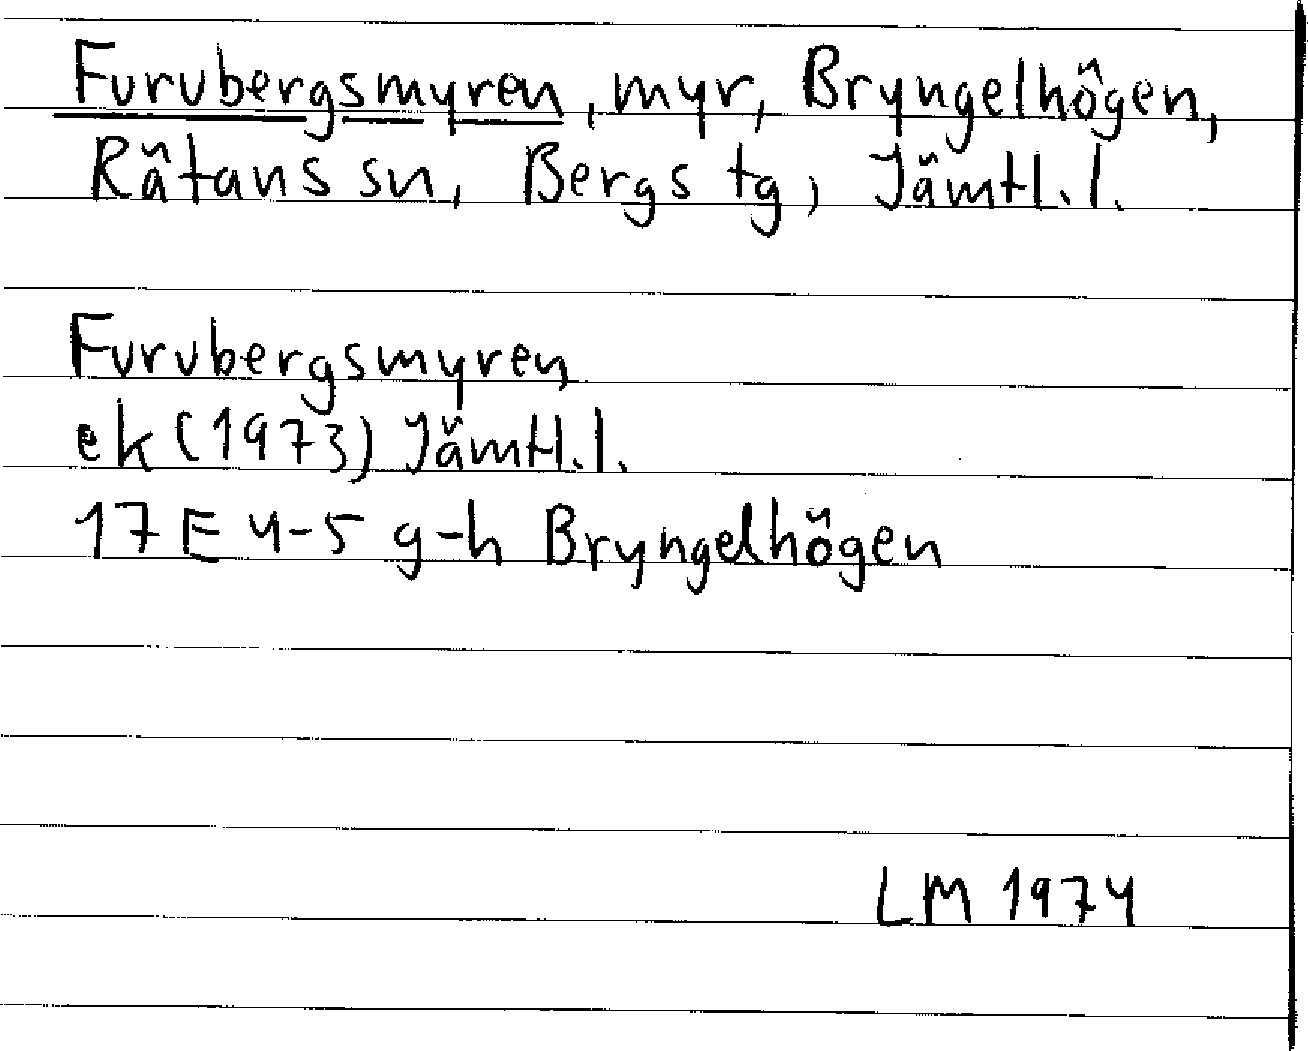 Furubergsmyren, myr, Bryngelhögen,
Rätans sn, Bergs tg, Jämtl. l.
Furubergsmyren
ek (1973) Jämtl. l.
17E 4-5 g-h Bryngelhögen
LM 1974